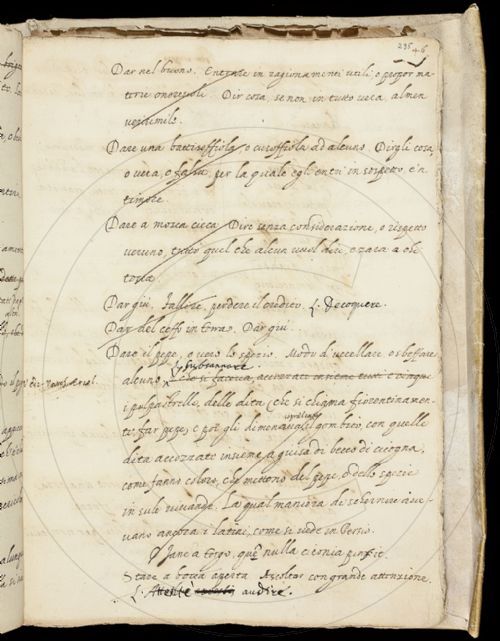 235 46
Dar nel buono. Entrare in ragionamenti utili, o propor ma-
terie onorevoli. Dir cosa, se non in tutto vera, almen
verisimile.
Dare una battisoffiola, o cusoffiola ad alcuno. Dirgli cosa,
o vera, o falsa, per la quale egli entri in sospetto e'n
timore.
Dare a mosca cieca. Dire senza considerazione, o rispetto
veruno, tutto quel che alcun vuol dire, e zara a chi
tocca.
Dar giù, Fallire, perdere il credito. L. Decoquere.
Dar del ceffo in terra. Dar giù.
Dare il pepe, o vero lo spezio. Modo d'uccellare, o sbeffare
alcuno, che si faceva, accozzati insieme tutti e cinque
L. subsannare
i polpastrelli, delle dita (che si chiama fiorentinamen-
te far pepe) e poi gli dimenavasi gomitico, con quelle
dita accozzate insieme a guisa di becco di cicogna,
come fanno coloro, che mettono del pepe, o dello spezie
in sule vivande. La qual maniera di schernire ave-
vano ancora i latini, come si vede in Persio.
O Jane a tergo, quē nulla ciconia pinsit.
Stare a bocca aperta Ascoltar con grande attenzione.
L. Attentè audire.